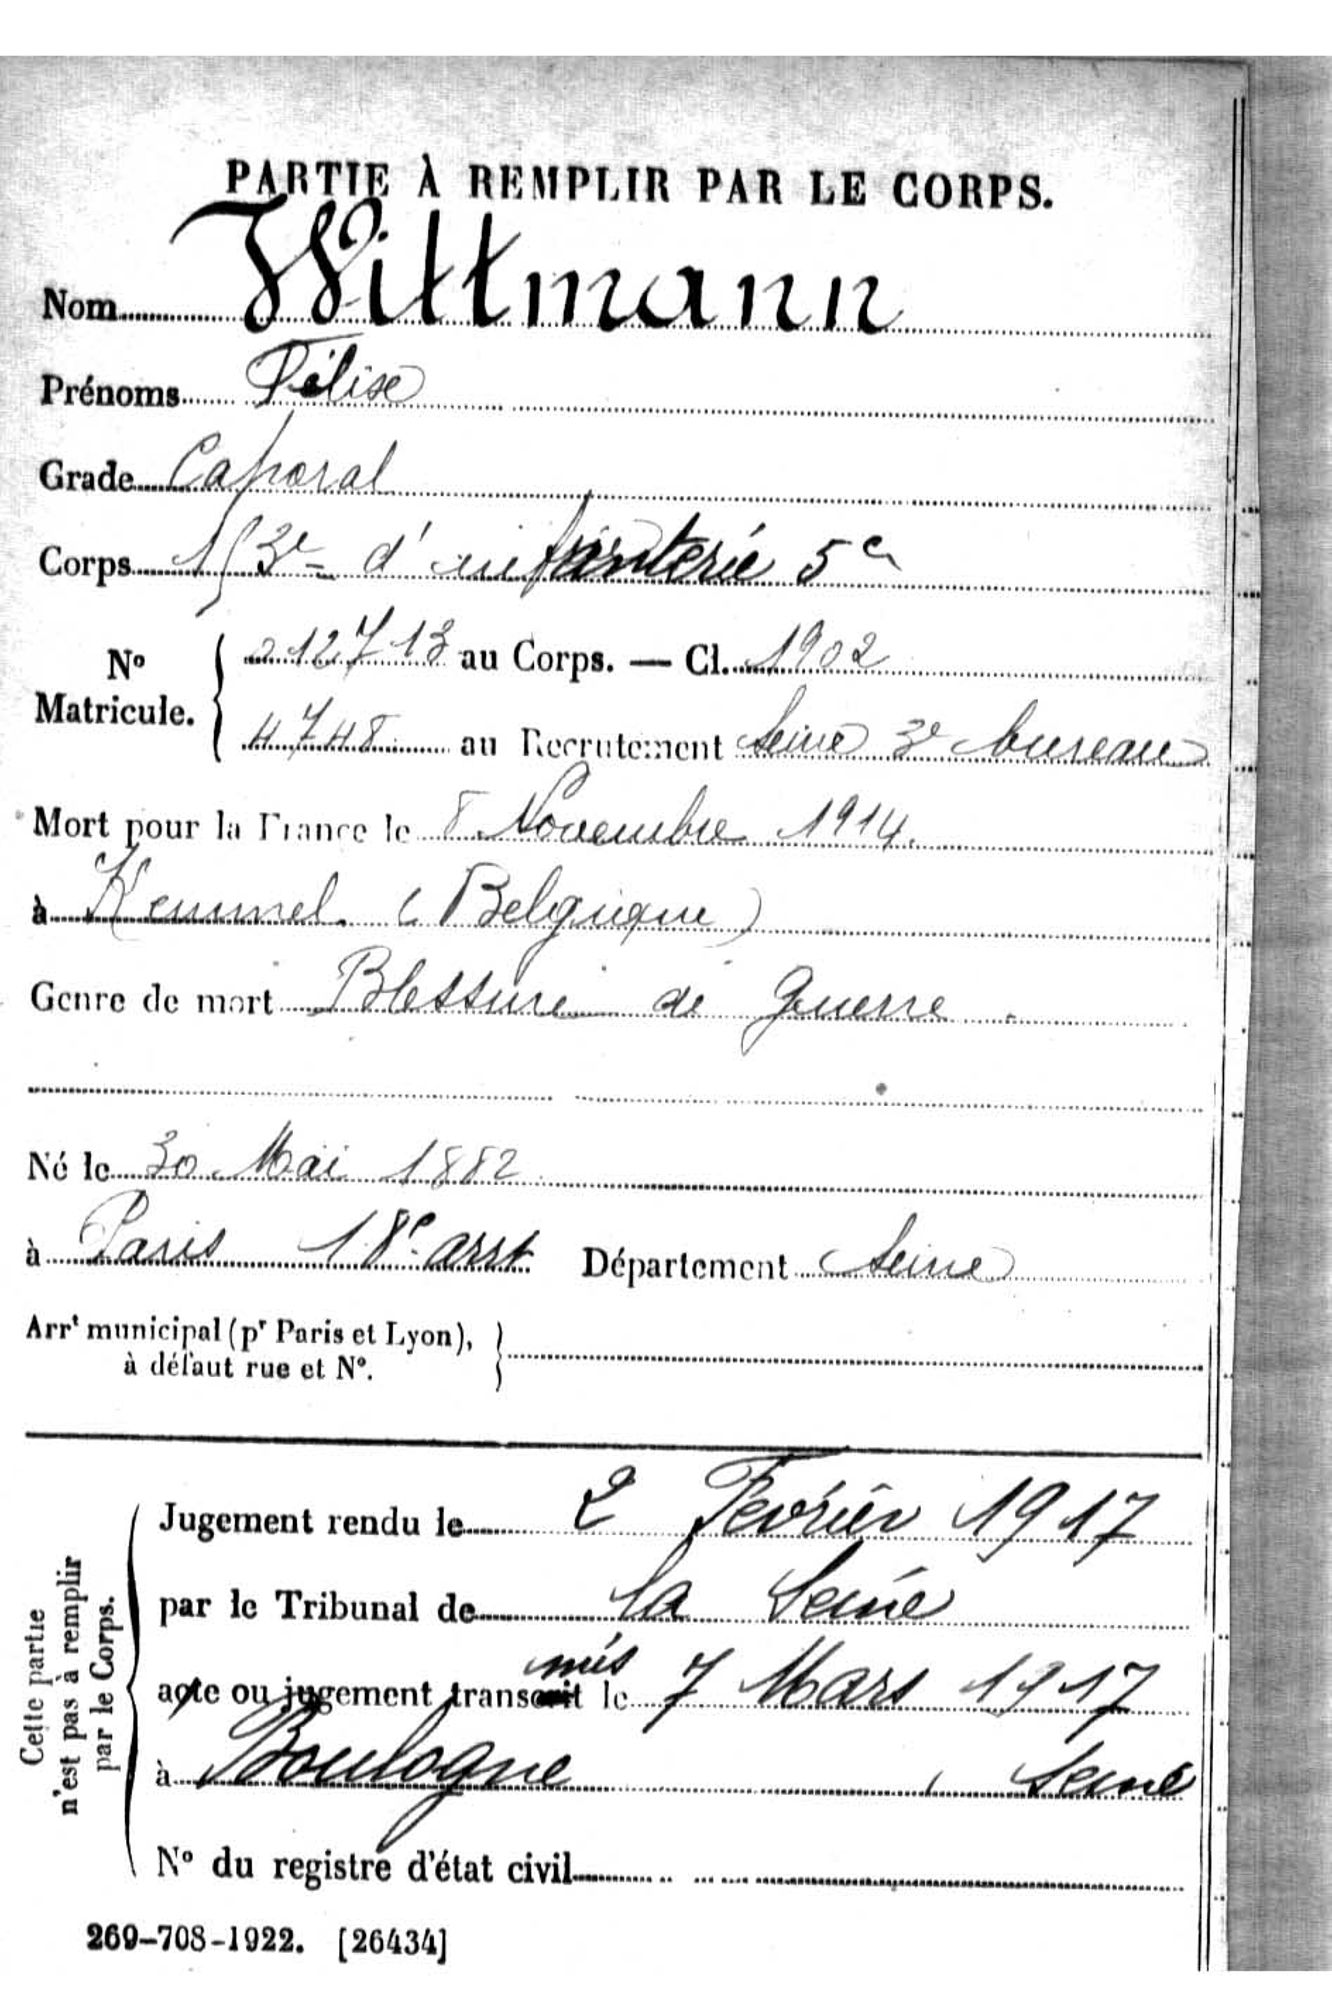 PARTIE À REMPLIR PAR LE CORPS.
Nom Wittmann
Prénoms Félise
Grade Caporal
Corps 153e d'infanterie 5e
No Matricule. 12713 au Corps. — Cl. 1902
4748 au Recrutement Seine 3e bureau
Mort pour la France le 8 Novembre 1914.
à Kemmel (Belgique)
Genre de mort Blessure de Guerre.
Né le 30 Mai 1882
à Paris 18e arrt Département Seine
Arrt municipal (pr Paris et Lyon),
à défaut rue et No.
Cette partie
n'est pas à remplir
par le Corps.
Jugement rendu le 2 Février 1917
par le Tribunal de la Seine
mis
acte ou jugement transcrit le 7 Mars 1917
à Boulogne, Seine
No du registre d'état civil
269-708-1922. [26434]